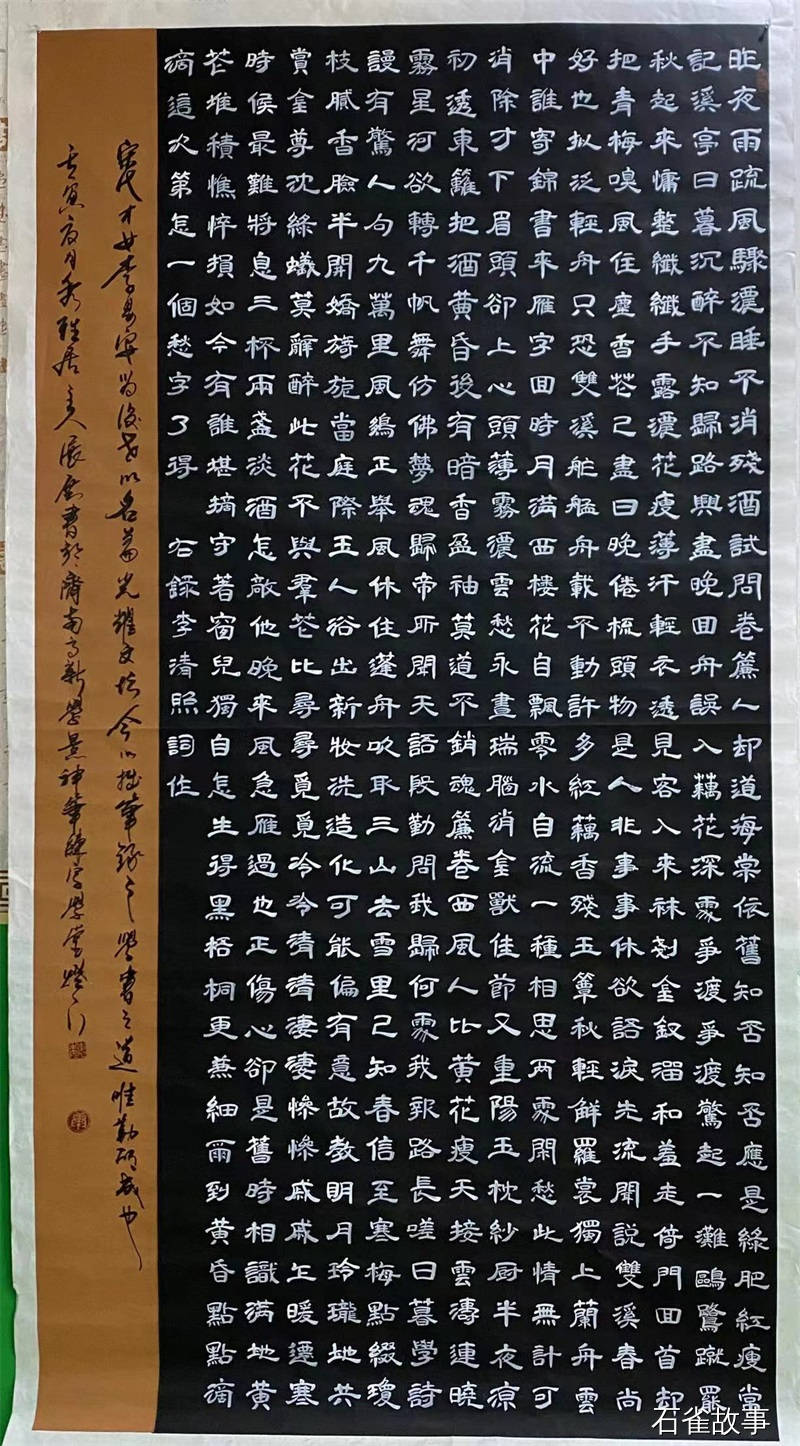 昨夜雨疏風驟濃睡不消殘酒試問卷簾人却道海棠依舊知否知否應是綠肥紅瘦常
記溪亭日暮沉醉不知歸路興盡晚回舟誤入藕花深處爭渡爭渡驚起一灘鷗鷺蹴罷
秋起來慵整纖纖手露濃花瘦薄汗輕衣透見客入來袜剗金釵溜和羞走倚門回首却
把青梅嗅風住塵香花已盡日晚倦梳頭物是人非事事休欲語淚先流聞說雙溪春尚
好也拟泛輕舟只恐雙溪舴艋舟載不動許多紅藕香殘玉簟秋輕解羅裳獨上蘭舟雲
中誰寄錦書來雁字回時月滿西樓花自飄零水自流一種相思兩處閑愁此情無計可
消除才下眉頭卻上心頭薄霧濃雲愁永晝瑞腦消金獸佳節又重陽玉枕紗厨半夜涼
初透東籬把酒黃昏後有暗香盈袖莫道不銷魂簾卷西風人比黃花瘦天接雲濤連曉
霧星河欲轉千帆舞仿佛夢魂歸帝所聞天語殷勤問我歸何處我報路長嗟日暮學詩
謾有驚人句九萬里風鵷正舉風休住蓬舟吹取三山去雪里已知春信至寒梅點綴瓊
枝膩香臉半開嬌旖旎當庭際玉人浴出新妝洗造化可能偏有意故教明月玲瓏地共
賞金尊沈綠蟻莫辭醉此花不與羣花比尋尋覓覓冷冷清清淒淒慘慘戚戚乍暖還寒
時候最難將息三杯兩盞淡酒怎敵他晚來風急雁過也正傷心卻是舊時相識滿地黃
花堆積憔悴損如今有誰堪摘守著窗兒獨自怎生得黑梧桐更兼細雨到黃昏點點滴
滴這次第怎一個愁字了得 右錄李清照詞作
宋代才女李易安為後世以名篇光耀文坛今以拙筆錄之學書之道唯勤能成也
壬寅夏月於雅居主人張書於濟南高新學景神筆練字學堂燈下
石雀故事